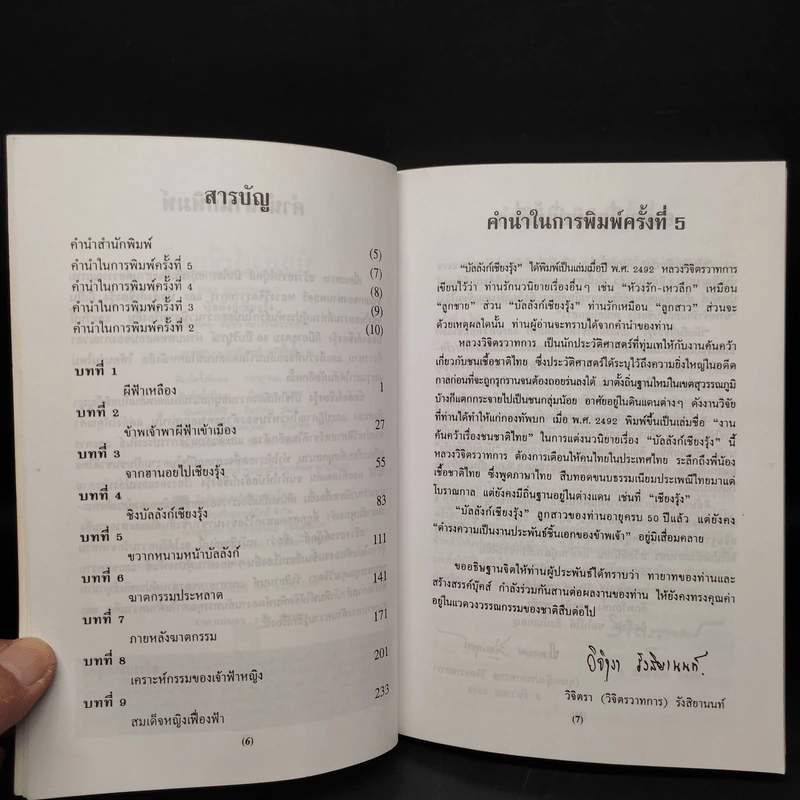 สารบัญ
คำนำสำนักพิมพ์ (5)
คำนำในการพิมพ์ครั้งที่ 5 (7)
คำนำในการพิมพ์ครั้งที่ 4 (8)
คำนำในการพิมพ์ครั้งที่ 3 (9)
คำนำในการพิมพ์ครั้งที่ 2 (10)
บทที่ 1
ผีฟ้าเหลือง 1
บทที่ 2
ข้าพเจ้าพาผีฟ้าเข้าเมือง 27
บทที่ 3
จากฮานอยไปเชียงรุ้ง 55
บทที่ 4
ชิงบัลลังก์เชียงรุ้ง 83
บทที่ 5
ขวากหนามหน้าบัลลังก์ 111
บทที่ 6
ฆาตกรรมประหลาด 141
บทที่ 7
ภายหลังฆาตกรรม 171
บทที่ 8
เคราะห์กรรมของเจ้าฟ้าหญิง 201
บทที่ 9
สมเด็จหญิงเฟื่องฟ้า 233
(6)
คำนำในการพิมพ์ครั้งที่ 5
"บัลลังก์เชียงรุ้ง" ได้พิมพ์เป็นเล่มเมื่อปี พ.ศ. 2492 หลวงวิจิตรวาทการ
เขียนไว้ว่า ท่านรักนวนิยายเรื่องอื่นๆ เช่น "ห้วงรัก-เหวลึก" เหมือน
"ลูกชาย" ส่วน "บัลลังก์เชียงรุ้ง" ท่านรักเหมือน "ลูกสาว" ส่วนจะ
ด้วยเหตุผลใดนั้น ท่านผู้อ่านจะทราบได้จากคำนำของท่าน
หลวงวิจิตรวาทการ เป็นนักประวัติศาสตร์ที่ทุ่มเทให้กับงานค้นคว้า
เกี่ยวกับชนเชื้อชาติไทย ซึ่งประวัติศาสตร์ได้ระบุไว้ถึงความยิ่งใหญ่ในอดีต
กาลก่อนที่จะถูกรุกรานจนต้องถอยร่นลงใต้ มาตั้งถิ่นฐานใหม่ในเขตสุวรรณภูมิ
บ้างก็แตกกระจายไปเป็นชนกลุ่มน้อย อาศัยอยู่ในดินแดนต่างๆ ดังงานวิจัย
ที่ท่านได้ทำให้แก่กองทัพบก เมื่อ พ.ศ. 2492 พิมพ์ขึ้นเป็นเล่มชื่อ "งาน
ค้นคว้าเรื่องชนชาติไทย" ในการแต่งนวนิยายเรื่อง "บัลลังก์เชียงรุ้ง" นี้
หลวงวิจิตรวาทการ ต้องการเตือนให้คนไทยในประเทศไทย ระลึกถึงพี่น้อง
เชื้อชาติไทย ซึ่งพูดภาษาไทย สืบทอดขนบธรรมเนียมประเพณีไทยมาแต่
โบราณกาล แต่ยังคงมีถิ่นฐานอยู่ในต่างแดน เช่นที่ "เชียงรุ้ง"
"บัลลังก์เชียงรุ้ง" ลูกสาวของท่านอายุครบ 50 ปีแล้ว แต่ยังคง
"ดำรงความเป็นงานประพันธ์ชิ้นเอกของข้าพเจ้า" อยู่มิเสื่อมคลาย
ขออธิษฐานจิตให้ท่านผู้ประพันธ์ได้ทราบว่า ทายาทของท่านและ
สร้างสรรค์บุ๊คส์ กำลังร่วมกันสานต่อผลงานของท่าน ให้ยังคงทรงคุณค่า
อยู่ในแวดวงวรรณกรรมของชาติสืบต่อไป
วิจิตรา รังสิยานนท์
วิจิตรา (วิจิตรวาทการ) รังสิยานนท์
(7)